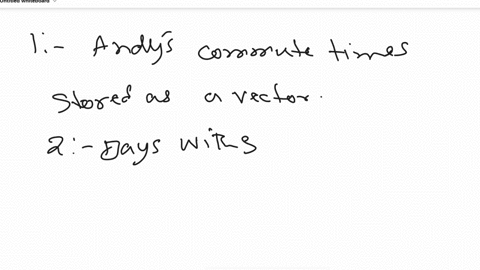 Untitled whiteboard
1:- Andy's commute times
stored as a vector.
2:- Days with s